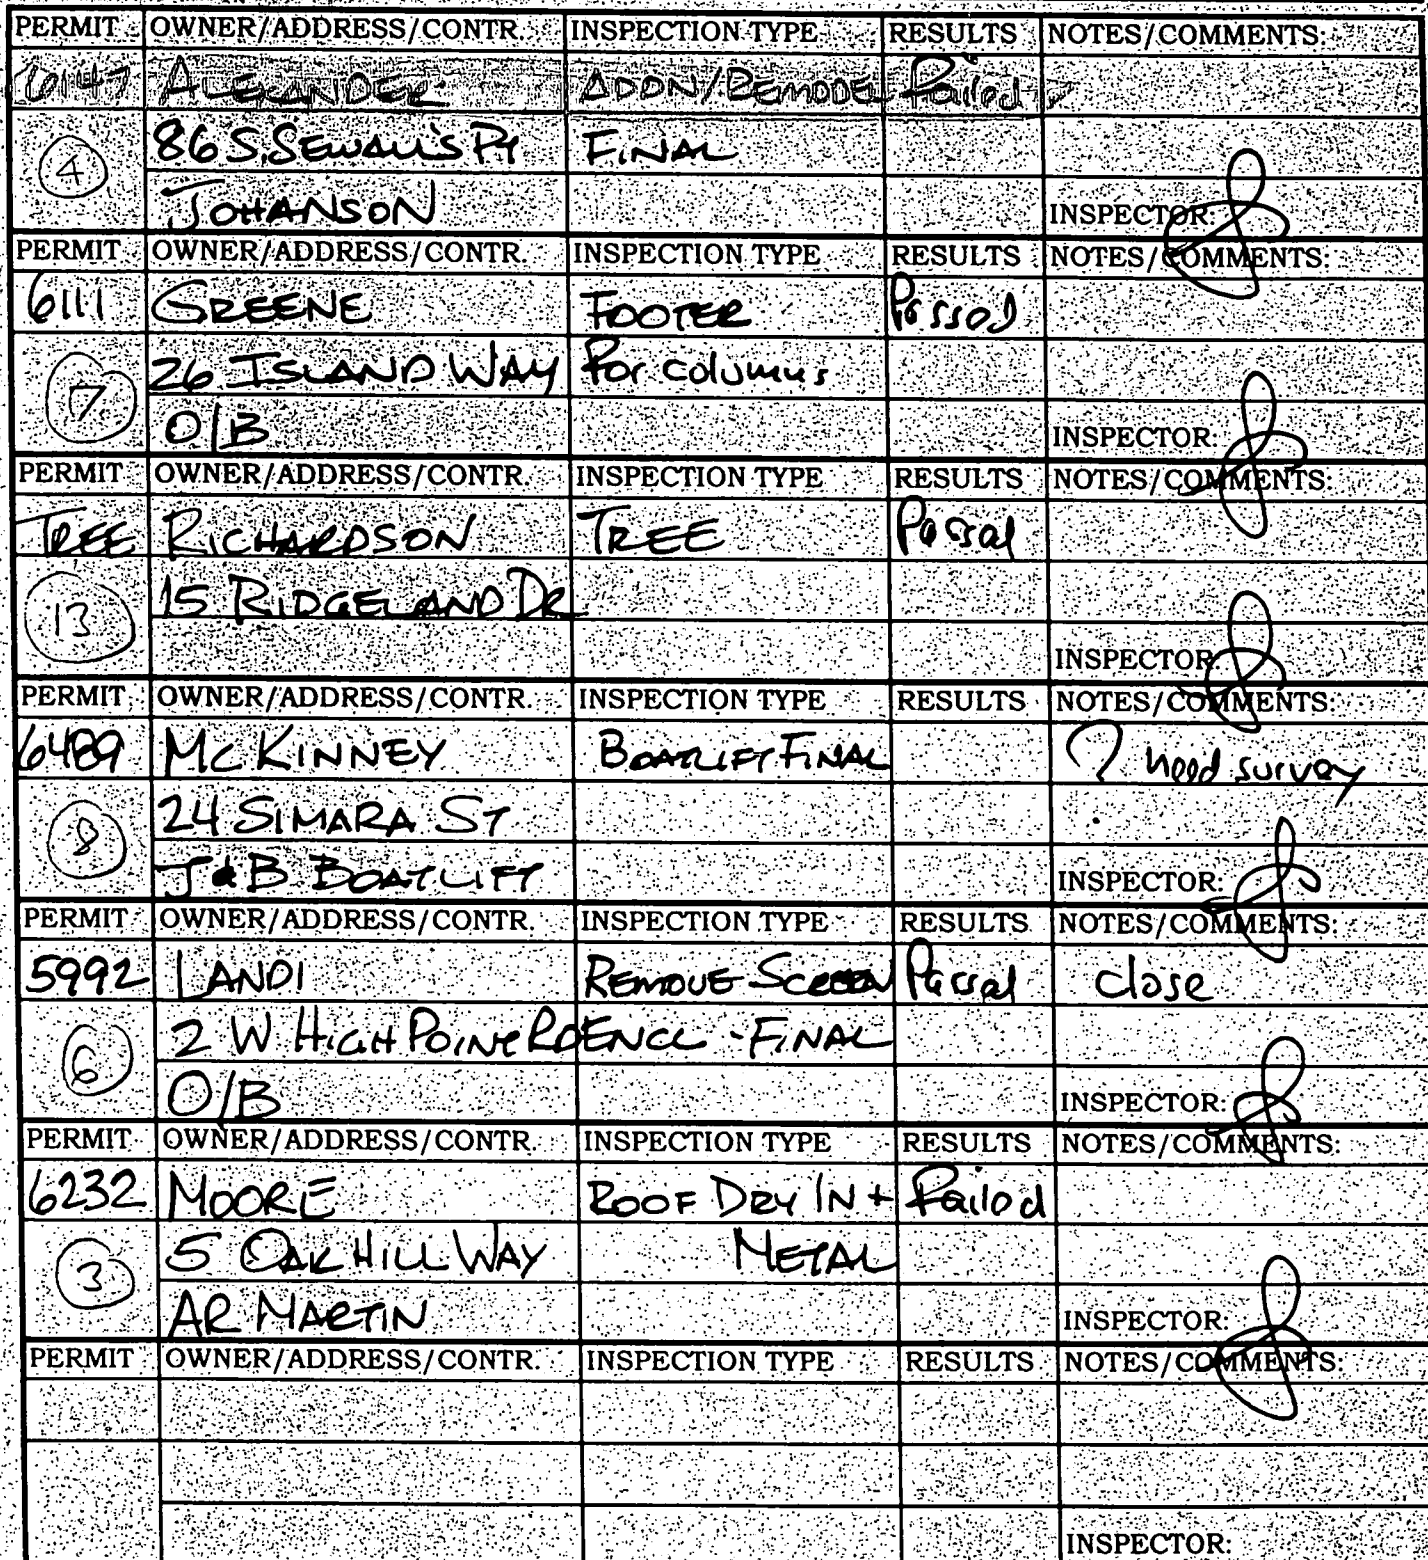 PERMIT OWNER/ADDRESS/CONTR. INSPECTION TYPE RESULTS NOTES/COMMENTS:
6147 ALEXANDER ADDN/REMODEL Failed
4 86 S. SEWALL'S PT FINAL
JOHANSON INSPECTOR:
PERMIT OWNER/ADDRESS/CONTR. INSPECTION TYPE RESULTS NOTES/COMMENTS:
6111 GREENE FOOTER Passed
7 26 ISLAND WAY For columns
O/B INSPECTOR:
PERMIT OWNER/ADDRESS/CONTR. INSPECTION TYPE RESULTS NOTES/COMMENTS:
TREE RICHARDSON TREE Passed
13 15 RIDGELAND DR
INSPECTOR:
PERMIT OWNER/ADDRESS/CONTR. INSPECTION TYPE RESULTS NOTES/COMMENTS:
6489 MCKINNEY BOATLIFT FINAL ? need survey
8 24 SIMARA ST
J&B BOATLIFT INSPECTOR:
PERMIT OWNER/ADDRESS/CONTR. INSPECTION TYPE RESULTS NOTES/COMMENTS:
5992 LANDI REMOVE SCREEN Passed close
6 2 W HIGH POINT RD ENCL - FINAL
O/B INSPECTOR:
PERMIT OWNER/ADDRESS/CONTR. INSPECTION TYPE RESULTS NOTES/COMMENTS:
6232 MOORE ROOF DRY IN + Failed
3 5 OAK HILL WAY METAL
AR MARTIN INSPECTOR:
PERMIT OWNER/ADDRESS/CONTR. INSPECTION TYPE RESULTS NOTES/COMMENTS:
INSPECTOR: